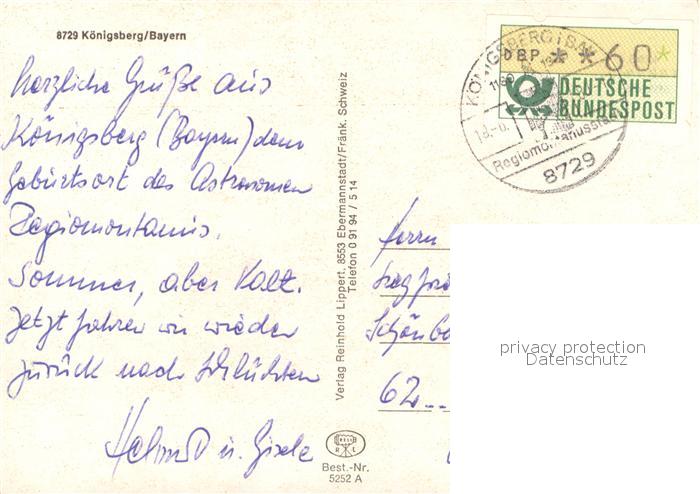 8729 Königsberg/Bayern
Herzliche Grüße aus
Königsberg (Bayern) dem
Geburtsort des Astronomen
Regiomontanus.
Sommer, aber kalt.
Jetzt fahren wir wieder
zurück nach Schlüchtern
Helmut u. Gisela
Verlag Reinhold Lippert, 8553 Ebermannstadt/Fränk. Schweiz
Telefon 0 91 94 / 5 14
RELI
R L
Best.-Nr.
5252 A
KÖNIGSBERG i BAY
Regiomontanusstadt
8729
DBP * *60*
DEUTSCHE
BUNDESPOST
Herrn
Siegfrie
Schönbe
62...
privacy protection
Datenschutz